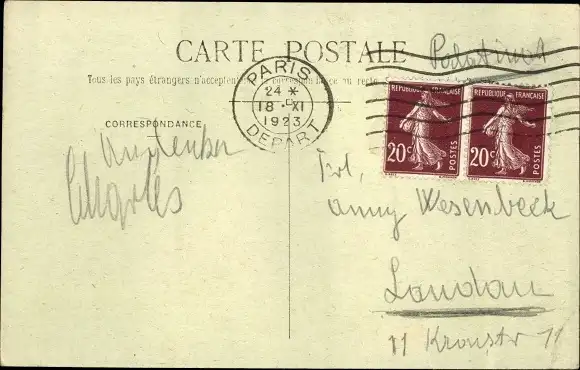 CARTE POSTALE
Palatinat
Tous les pays étrangers n'acceptent
CORRESPONDANCE
PARIS
24 *
18 XI
1923
DEPART
REPUBLIQUE FRANÇAISE
20c
POSTES
REPUBLIQUE FRANÇAISE
20c
POSTES
Andenken
Charles
Frl,
Anny Wesenbeck
Landau
11 Kronstr 11